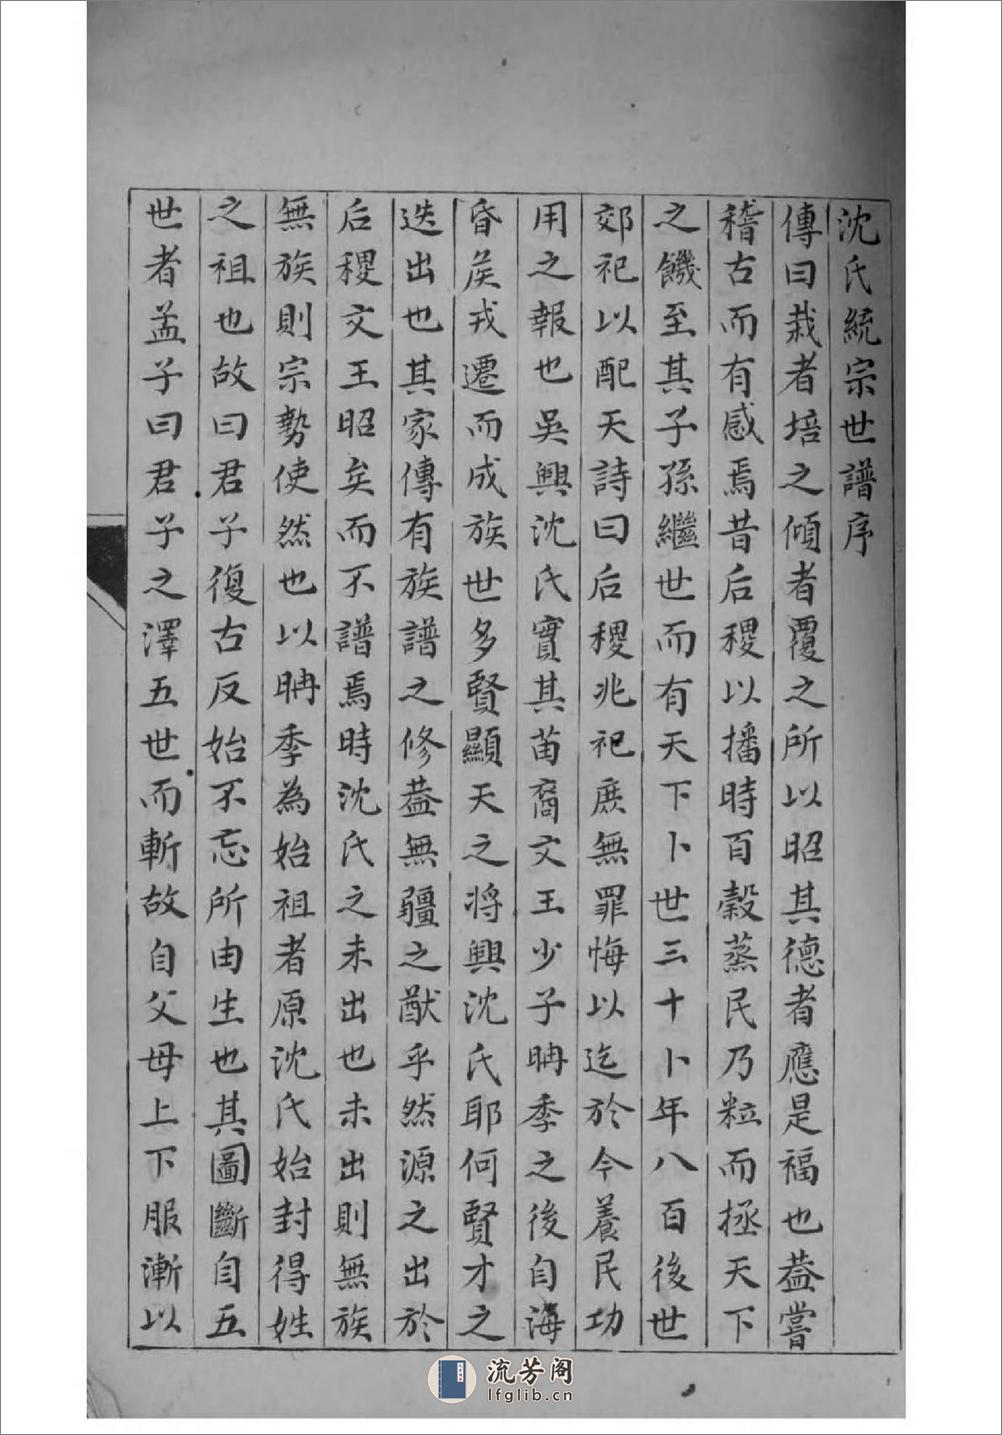 沈氏統宗世譜序
傳曰栽者培之傾者覆之所以昭其德者應是福也葢嘗
稽古而有感焉昔后稷以播時百穀蒸民乃粒而拯天下
之饑至其子孫繼世而有天下卜世三十卜年八百後世
郊祀以配天詩曰后稷兆祀庶無罪悔以迄於今養民功
用之報也吳興沈氏實其苗裔文王少子聃季之後自海
昏矦戎遷而成族世多賢顯天之將興沈氏耶何賢才之
迭出也其家傳有族譜之修葢無疆之猷乎然源之出於
后稷文王昭矣而不譜焉時沈氏之未出也未出則無族
無族則宗勢使然也以聃季為始祖者原沈氏始封得姓
之祖也故曰君子復古反始不忘所由生也其圖斷自五
世者孟子曰君子之澤五世而斬故自父母上下服漸以
流芳阁
lfglib.cn